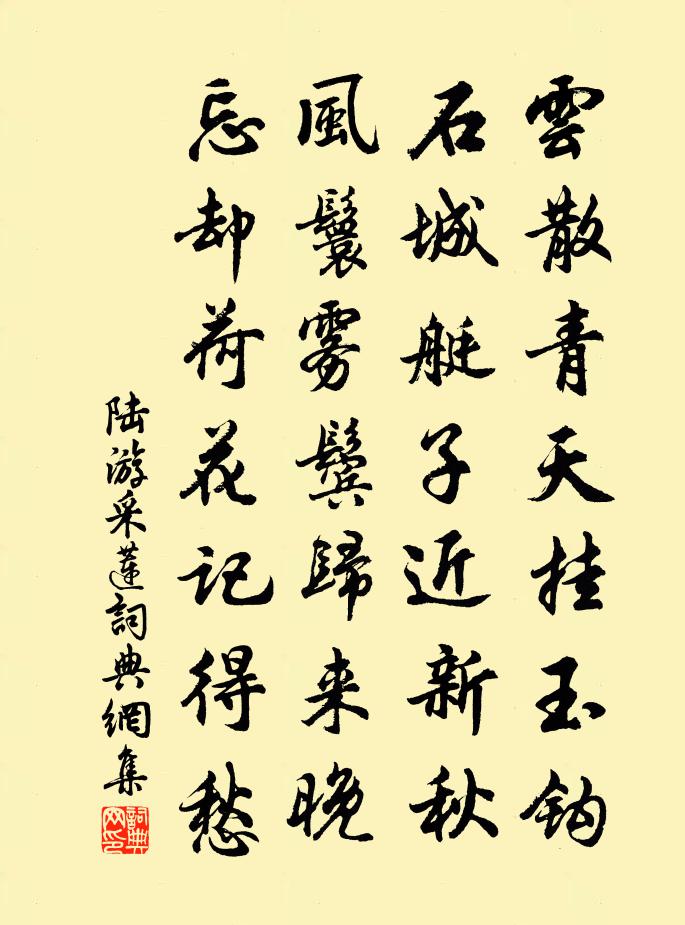 雲散青天挂玉钩
石城艇子近新秋
風鬟雾鬢歸来晚
忘却荷花记得愁
陆游采蓮詞典網集
詞典网印